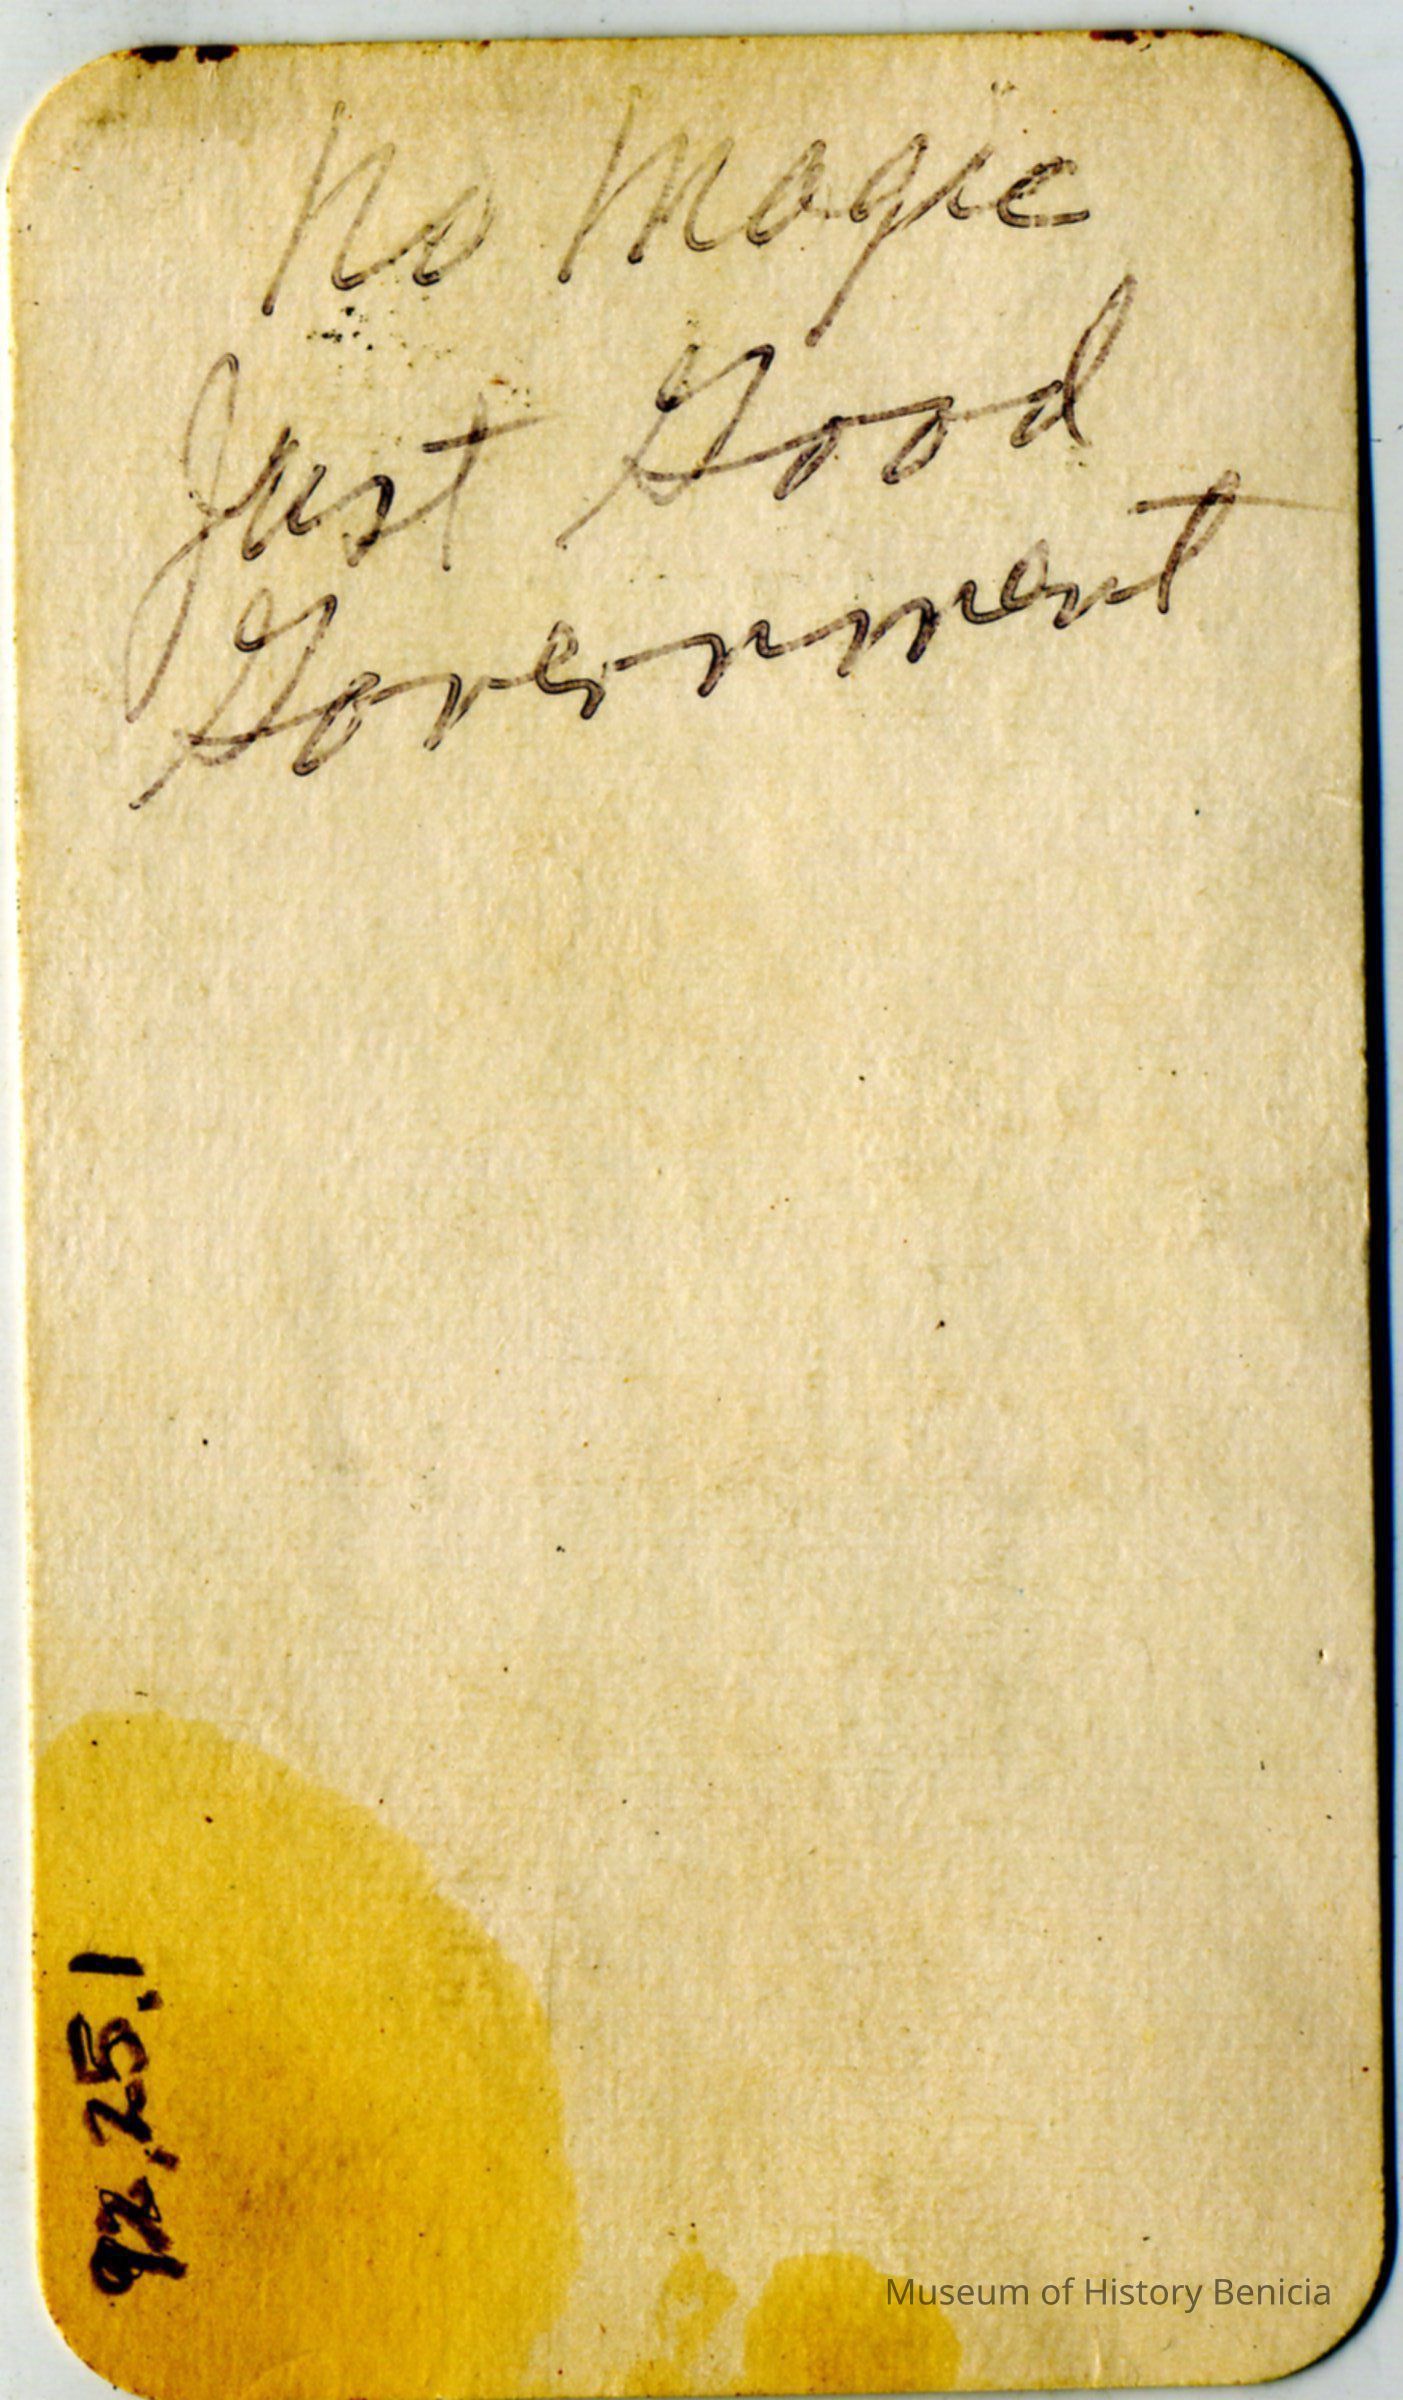 No Magic
Just Good
Government
92.25.1
Museum of History Benicia